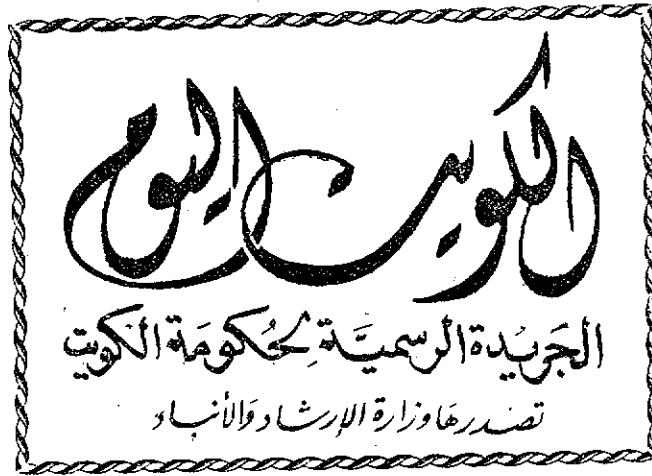 الكويت اليوم
الجَريْدة الرسميَّة لِحُكومَة الكويت
تصدرهَا وزارة الإرشاد وَالأنبَاء